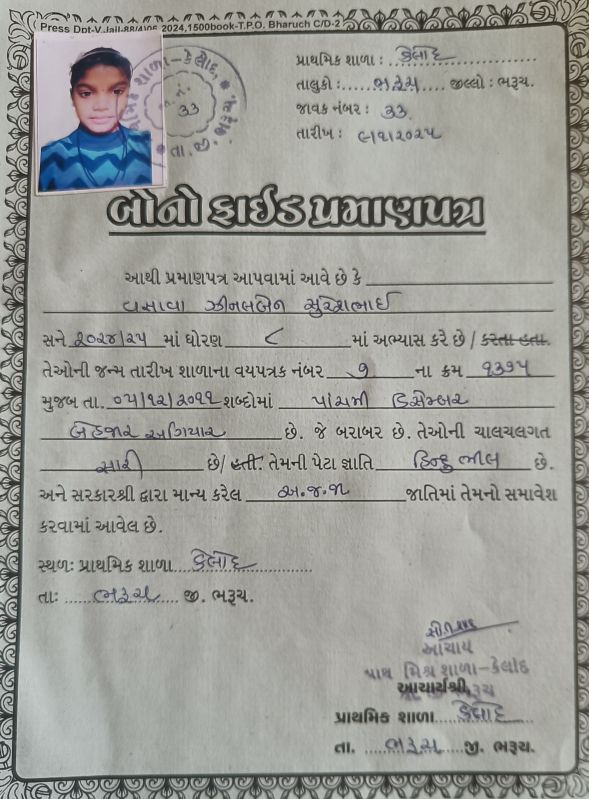 Press Dpt-V.Jail-88(4)06 2024,1500book-T.P.O. Bharuch C/D-2
પ્રાથમિક શાળા : કેલોદ
તાલુકો : ભરૂચ જીલ્લો : ભરૂચ.
જાવક નંબર : 33
તારીખ :
શાળા-કેલોદ,
33
તા. જી.
બોનોફાઈડ પ્રમાણપત્ર
આથી પ્રમાણપત્ર આપવામાં આવે છે કે
વસાવા ઝીનલબેન સુરેશભાઈ
સને ૨૦૨૪/૨૫ માં ધોરણ ૮ માં અભ્યાસ કરે છે / કરતા હતા.
તેઓની જન્મ તારીખ શાળાના વયપત્રક નંબર ૭ ના ક્રમ ૧૩૭૫
મુજબ તા. ૦૫/૧૨/૨૦૧૧ શબ્દોમાં પાંચમી ડિસેમ્બર
બેહજાર અગિયાર છે. જે બરાબર છે. તેઓની ચાલચલગત
સારી છે/ હતી. તેમની પેટા જ્ઞાતિ હિન્દુ ભીલ છે.
અને સરકારશ્રી દ્વારા માન્ય કરેલ અ.જ.જા જાતિમાં તેમનો સમાવેશ
કરવામાં આવેલ છે.
સ્થળઃ પ્રાથમિક શાળા કેલોદ
તાઃ ભરૂચ જી. ભરૂચ.
આચાર્ય
મિશ્ર શાળા-કેલોદ
આચાર્યશ્રી,
પ્રાથમિક શાળા કેલોદ
તા. ભરૂચ જી. ભરૂચ.